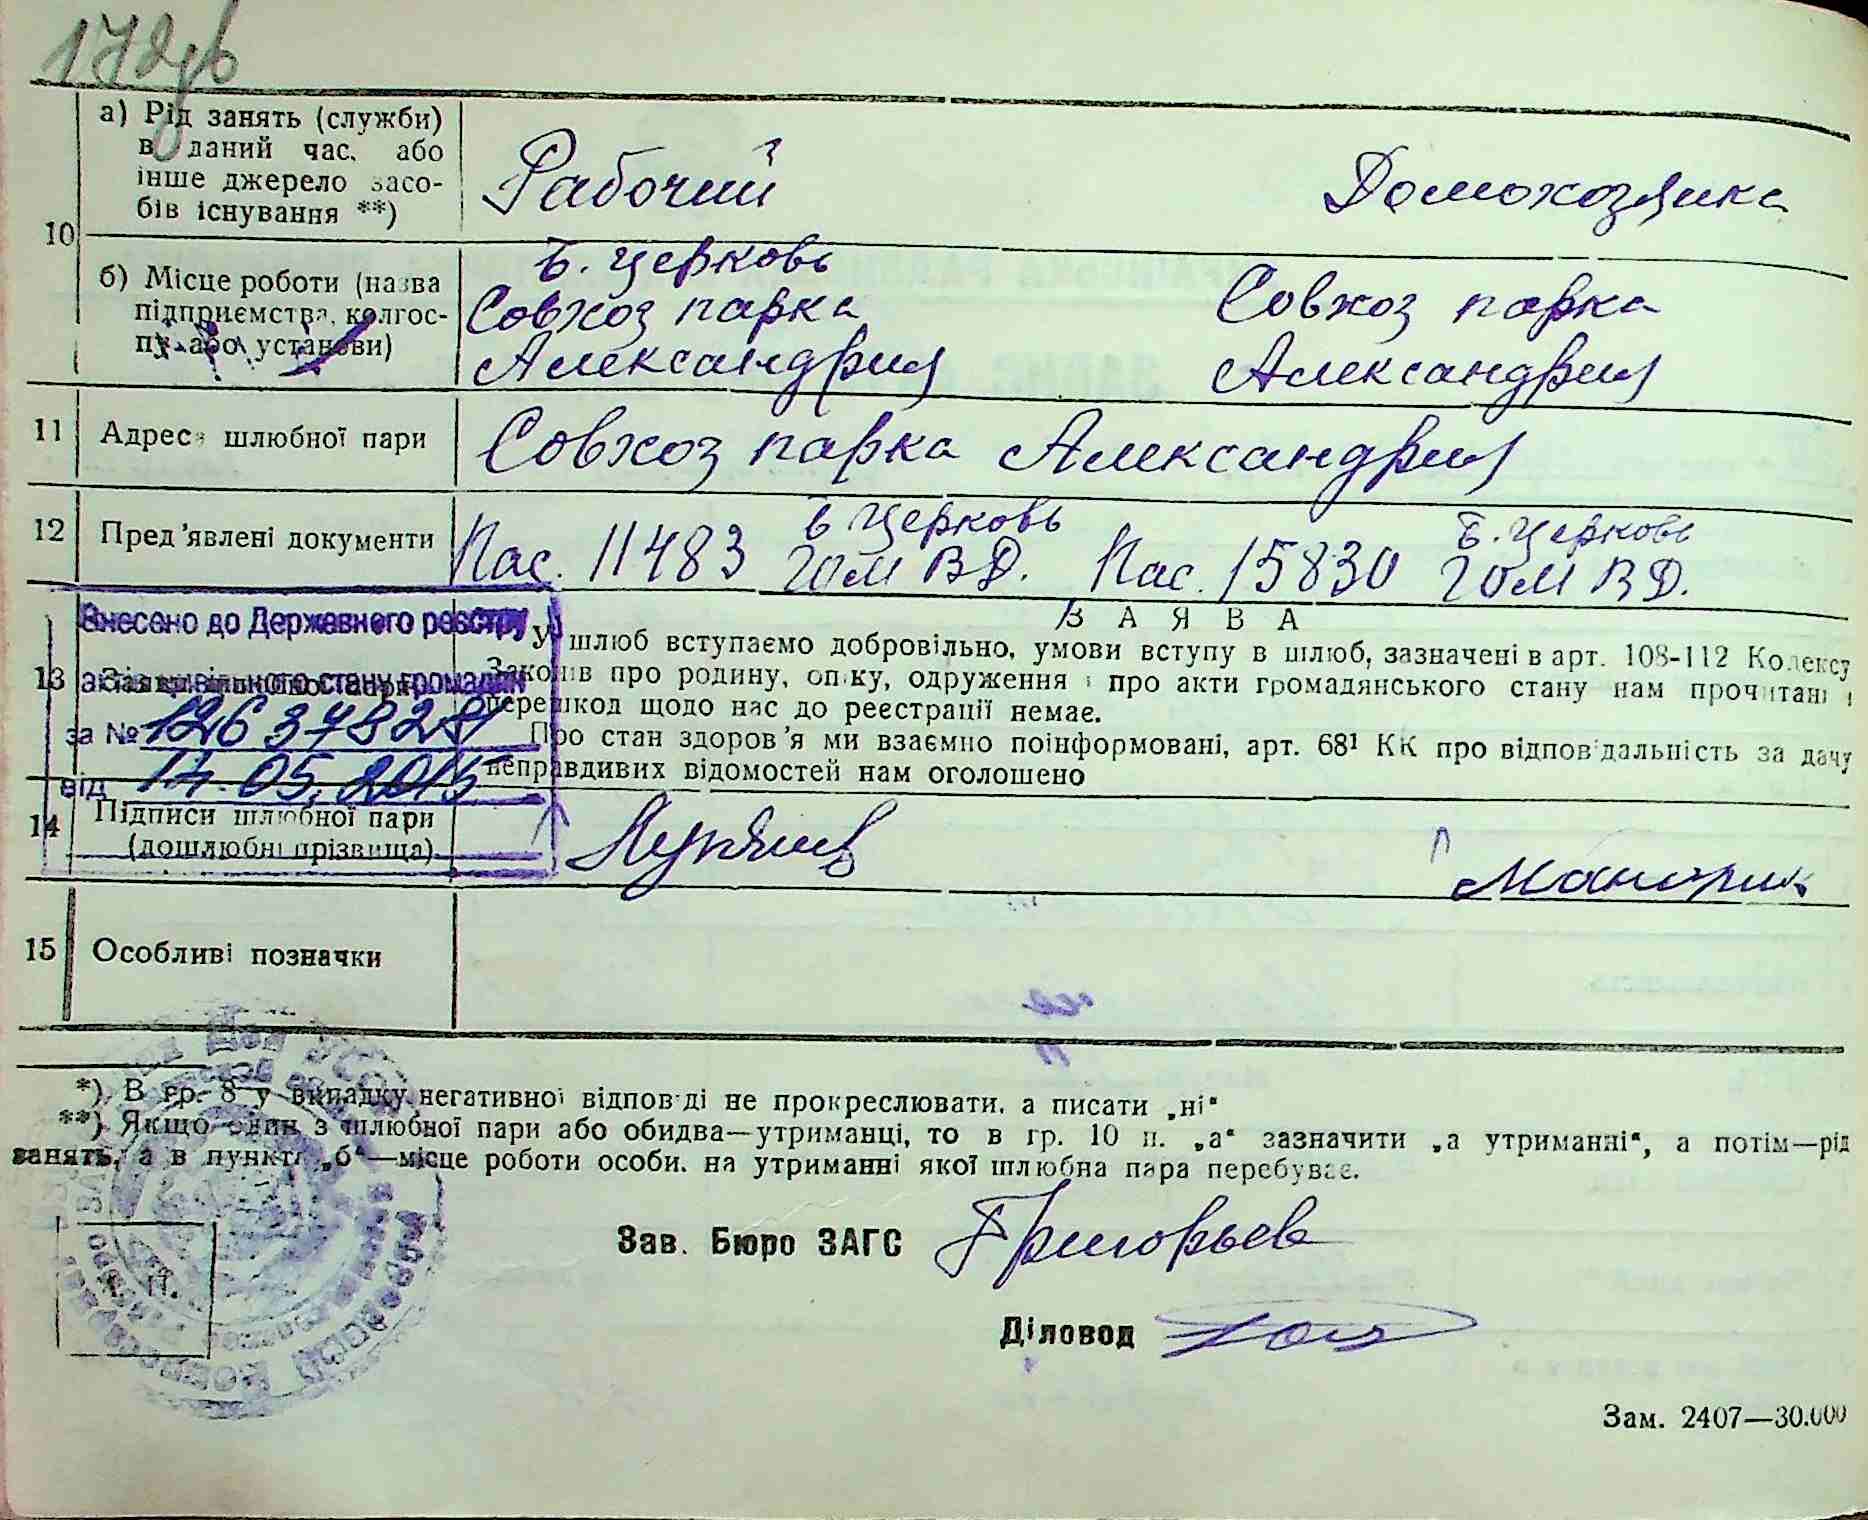 а) Рід занять (служби)
в даний час, або
інше джерело засо-
бів існування **)
Рабочий
Домохозяика
10
б) Місце роботи (назва
підприємства, колгос-
пу або установи)
Б. Церковь
Совхоз парка
Александрия
Совхоз парка
Александрия
11 Адреса шлюбної пари
Совхоз парка Александрия
12 Пред'явлені документи
Пас. 11483 Б Церковь ГОМ ВД. Пас. 15830 Б. Церковь ГОМ ВД.
Внесено до Державного реєстру
актів цивільного стану громадян
за №
від 14.05.2015
ЗАЯВА
13
У шлюб вступаємо добровільно, умови вступу в шлюб, зазначені в арт. 108-112 Кодексу
Законів про родину, опіку, одруження і про акти громадянського стану нам прочитані і
перешкод щодо нас до реєстрації немає.
Про стан здоров'я ми взаємно поінформовані, арт. 68¹ КК про відповідальність за дачу
неправдивих відомостей нам оголошено
14 Підписи шлюбної пари
(дошлюбні прізвища)
15 Особливі позначки
*) В гр. 8 у випадку негативної відповіді не прокреслювати, а писати „ні“
**) Якщо один з шлюбної пари або обидва—утриманці, то в гр. 10 п. „а“ зазначити „а утриманні“, а потім—рід
занять, а в пункті „б“—місце роботи особи, на утриманні якої шлюбна пара перебуває.
Зав. Бюро ЗАГС Григорьев
Діловод
Т. П.
Зам. 2407—30.000